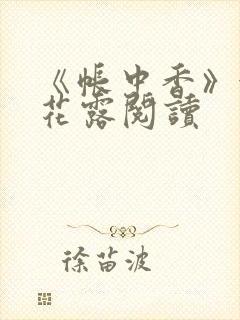 《帳中香》
花露閱讀
徐苗波